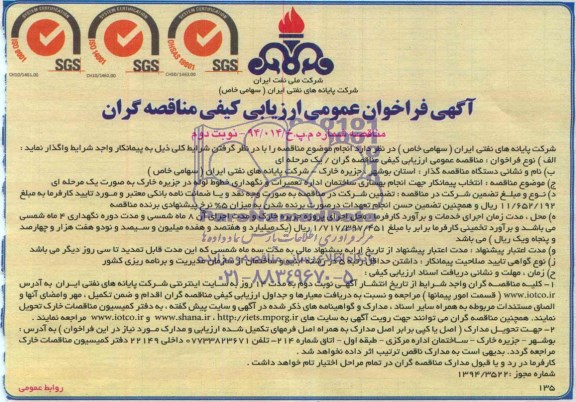 SYSTEM CERTIFICATION
ISO 9001
SGS
SYSTEM CERTIFICATION
ISO 14001
SGS
SYSTEM CERTIFICATION
OHSAS 18001
SGS
شرکت ملی نفت ایران
شرکت پایانه های نفتی ایران ( سهامی خاص)
آگهی فراخوان عمومی ارزیابی کیفی مناقصه گران
مناقصه شماره م.پ.خ/۹۴/۰۱۳ - نوبت دوم
شرکت پایانه های نفتی ایران ( سهامی خاص ) در نظر دارد انجام موضوع مناقصه را با در نظر گرفتن شرایط کلی ذیل به پیمانکار واجد شرایط واگذار نماید :
الف ) نوع فراخوان : مناقصه عمومی ارزیابی کیفی مناقصه گران / یک مرحله ای
ب) نام و نشانی دستگاه مناقصه گذار : استان بوشهر - جزیره خارک - شرکت پایانه های نفتی ایران ( سهامی خاص )
ج) موضوع مناقصه : انتخاب پیمانکار جهت انجام پیمان ساختمان اداره تعمیرات و نگهداری خطوط لوله در جزیره خارک به صورت یک مرحله ای
د) نوع و مبلغ تضمین شرکت در مناقصه : تضمین شرکت در مناقصه به صورت وجه نقد و یا ضمانت نامه بانکی معتبر و مورد تایید کارفرما به مبلغ
ریال و همچنین تضمین حسن انجام تعهدات درصورت برنده شدن به میزان ۵% نرخ پیشنهادی برنده مناقصه
ه) محل ، مدت زمان اجرای خدمات و برآورد کارفرما: محل اجرا
۸ ماه شمسی و مدت دوره نگهداری ۴ ماه شمسی
می باشد و برآورد تخمینی کارفرما برابر با مبلغ ۱/۷۱۷/۳۹۷/۴۵۱ ریال (یک میلیارد و هفتصد و هفده میلیون و سیصد و نودو هفت هزار و چهارصد
و پنجاه ویک ریال ) می باشد
و) مدت اعتبار پیشنهاد : مدت اعتبار پیشنهاد از تاریخ ارایه پیشنهاد مالی به مدت سه ماه شمسی که این مدت قابل تمدید تا سی روز دیگر می باشد
ز) نوع گواهی تایید صلاحیت پیمانکار : داشتن حداقل رتبه ۵ در رشته ابنیه و ساختمان از سازمان مدیریت و برنامه ریزی کشور
ح) زمان ، مهلت و نشانی دریافت اسناد ارزیابی کیفی :
۱- کلیه مناقصه گران واجد شرایط از تاریخ انتشار آگهی نوبت دوم به مدت ۱۲ روز به سایت اینترنتی شرکت پایانه های نفتی ایران به آدرس
www.iotco.ir ( قسمت امور پیمانها ) مراجعه و نسبت به دریافت معیارها و جداول ارزیابی کیفی مناقصه گران اقدام و ضمن تکمیل ، مهر وامضای آنها و
الصاق مستندات مربوطه به همراه سایر اسناد ، مدارک و گواهینامه های ذکر شده در آگهی و سایت پیش گفته ، به دفتر کمیسیون مناقصات خارک تحویل
نمایند. همچنین مناقصه گران می توانند جهت رویت آگهی به سایت های http://iets.mporg.ir ، www.shana.ir و www.iotco.ir مراجعه نمایند .
۲- جهت تحویل مدارک ( اصل یا کپی برابر اصل مدارک به همراه اصل فرمهای تکمیل شده ارزیابی و مدارک مورد نیاز در این فراخوان ) به آدرس :
بوشهر - جزیره خارک - ساختمان اداره مرکزی - طبقه اول - اتاق شماره ۲۱۴- تلفن ۰۷۷۳۳۸۲۳۶۷۱ داخلی ۲۲۱۴۹ دفتر کمیسیون مناقصات خارک
مراجعه گردد. بدیهی است به مدارک ناقص ترتیب اثر داده نخواهد شد .
مدارک در رد و یا قبول مناقصه گران در تمام مراحل اختیار تام خواهد داشت .
شماره مجوز :۱۳۹۴/۳۵۲۲
۱۳۵
روابط عمومی
۰۲۱-۸۸۳۴۹۶۷۰-۵